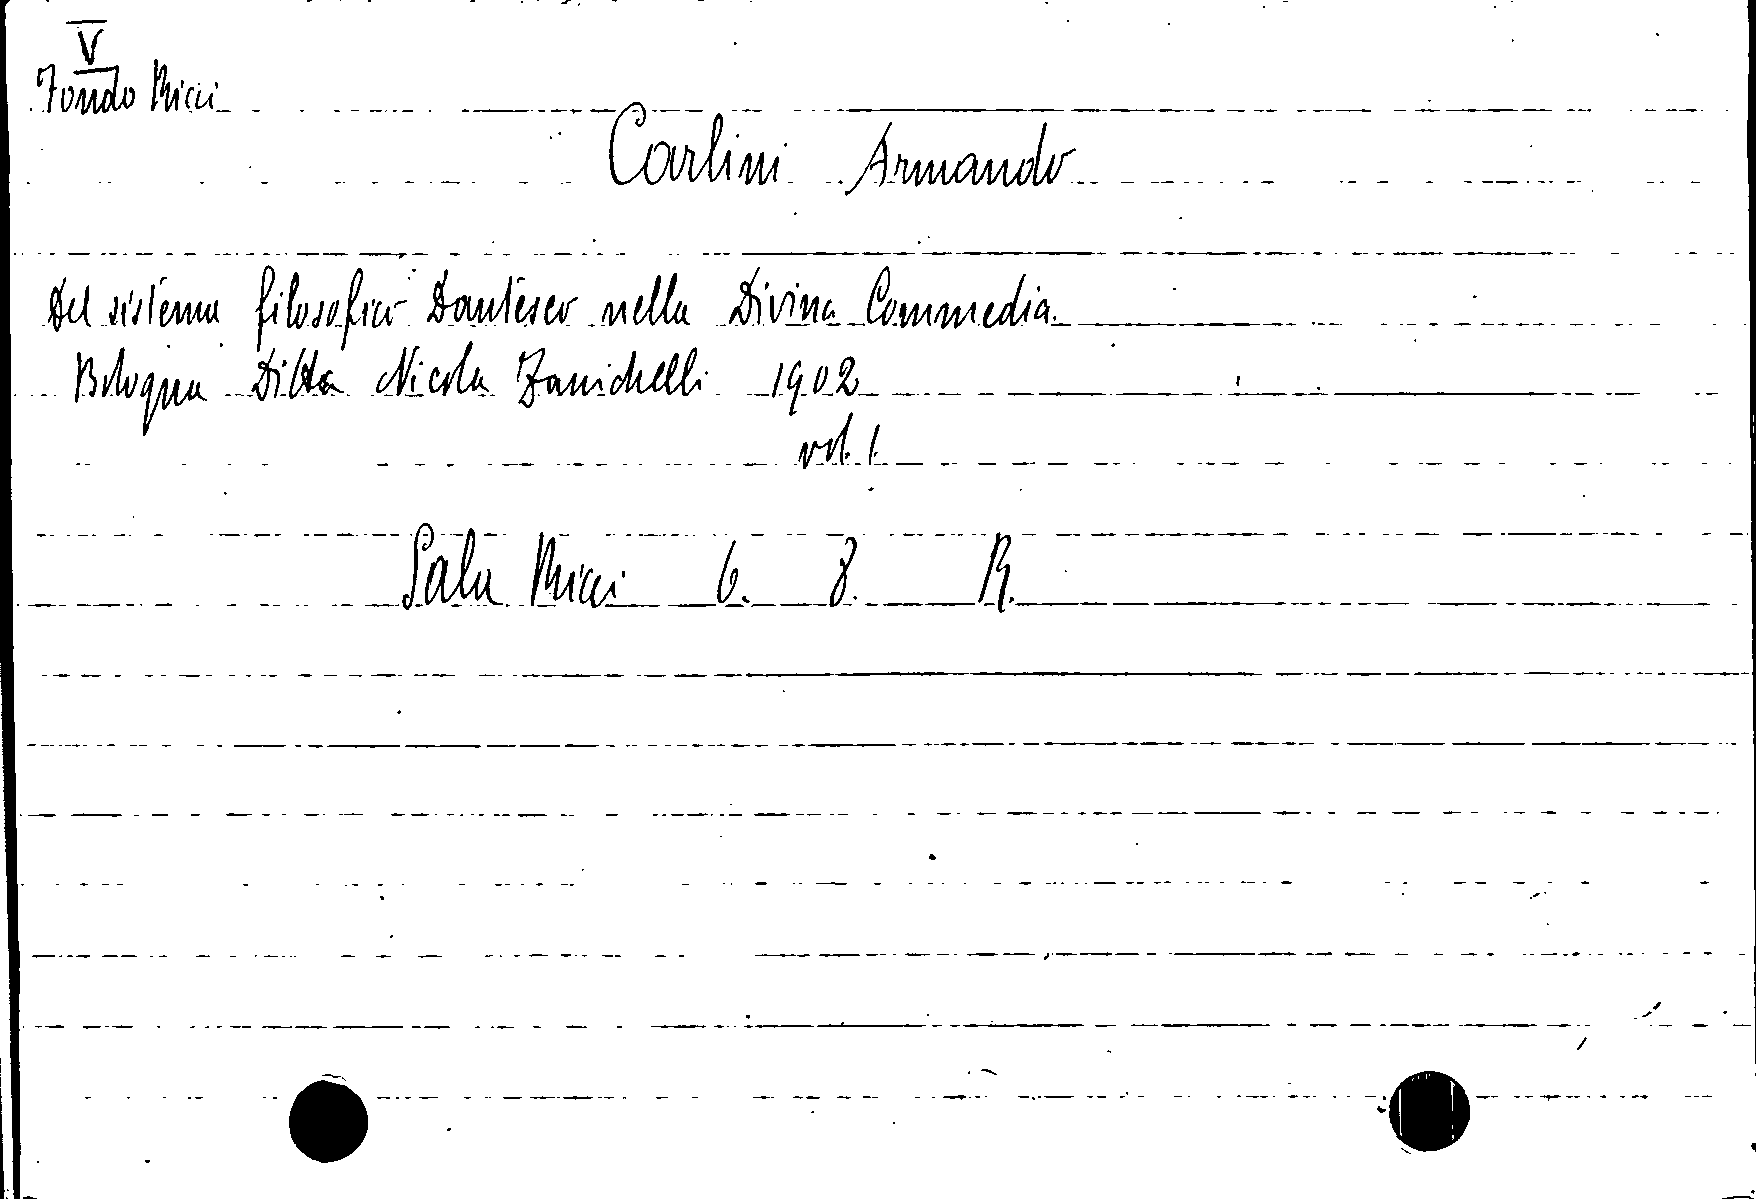 V
Fondo Ricci
Carlini Armando
Del sistema filosofico Dantesco nella Divina Commedia.
Bologna Ditta Nicola Zanichelli 1902
vol. 1.
Sala Ricci 6. 8. R.